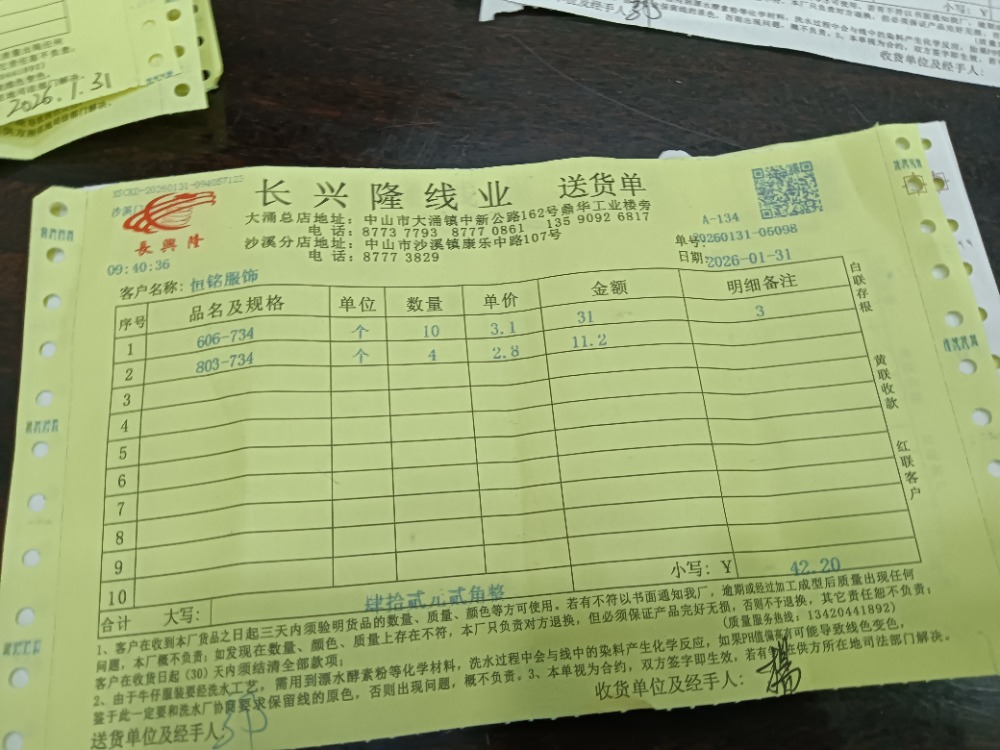 2026.1.31
小写：Y
收货单位及经手人：
XSCKD-20260131-094057123
沙溪门
長興隆
长兴隆线业 送货单
大涌总店地址：中山市大涌镇中新公路162号鼎华工业楼旁
电 话：8773 7793 8777 0861 135 9092 6817
沙溪分店地址：中山市沙溪镇康乐中路107号
电 话：8777 3829
A-134
单号:20260131-06098
日期:2026-01-31
09:40:36
客户名称：恒铭服饰
序号 品名及规格 单位 数量 单价 金额 明细备注
1 606-734 个 10 3.1 31 3
2 803-734 个 4 2.8 11.2
3
4
5
6
7
8
9
10
小写：Y 42.20
合计 大写： 肆拾贰元贰角整
白联存根
黄联收款
红联客户
1、客户在收到本厂货品之日起三天内须验明货品的数量、质量、颜色等方可使用。若有不符以书面通知我厂，逾期或经过加工成型后质量出现任何
问题，本厂概不负责；如发现在数量、颜色、质量上存在不符，本厂只负责对方退换，但必须保证产品完好无损，否则不予退换，其它责任恕不负责；
客户在收货日起（30）天内须结清全部款项；
（质量服务热线：13420441892）
2、由于牛仔服装要经洗水工艺，需用到漂水酵素粉等化学材料，洗水过程中会与线中的染料产生化学反应，如果PH值偏高有可能导致线色变色，
鉴于此一定要和洗水厂协商要求保留线的原色，否则出现问题，概不负责。3、本单视为合约，双方签字即生效，若有争 在供方所在地司法部门解决。
送货单位及经手人：
收货单位及经手人： 杨